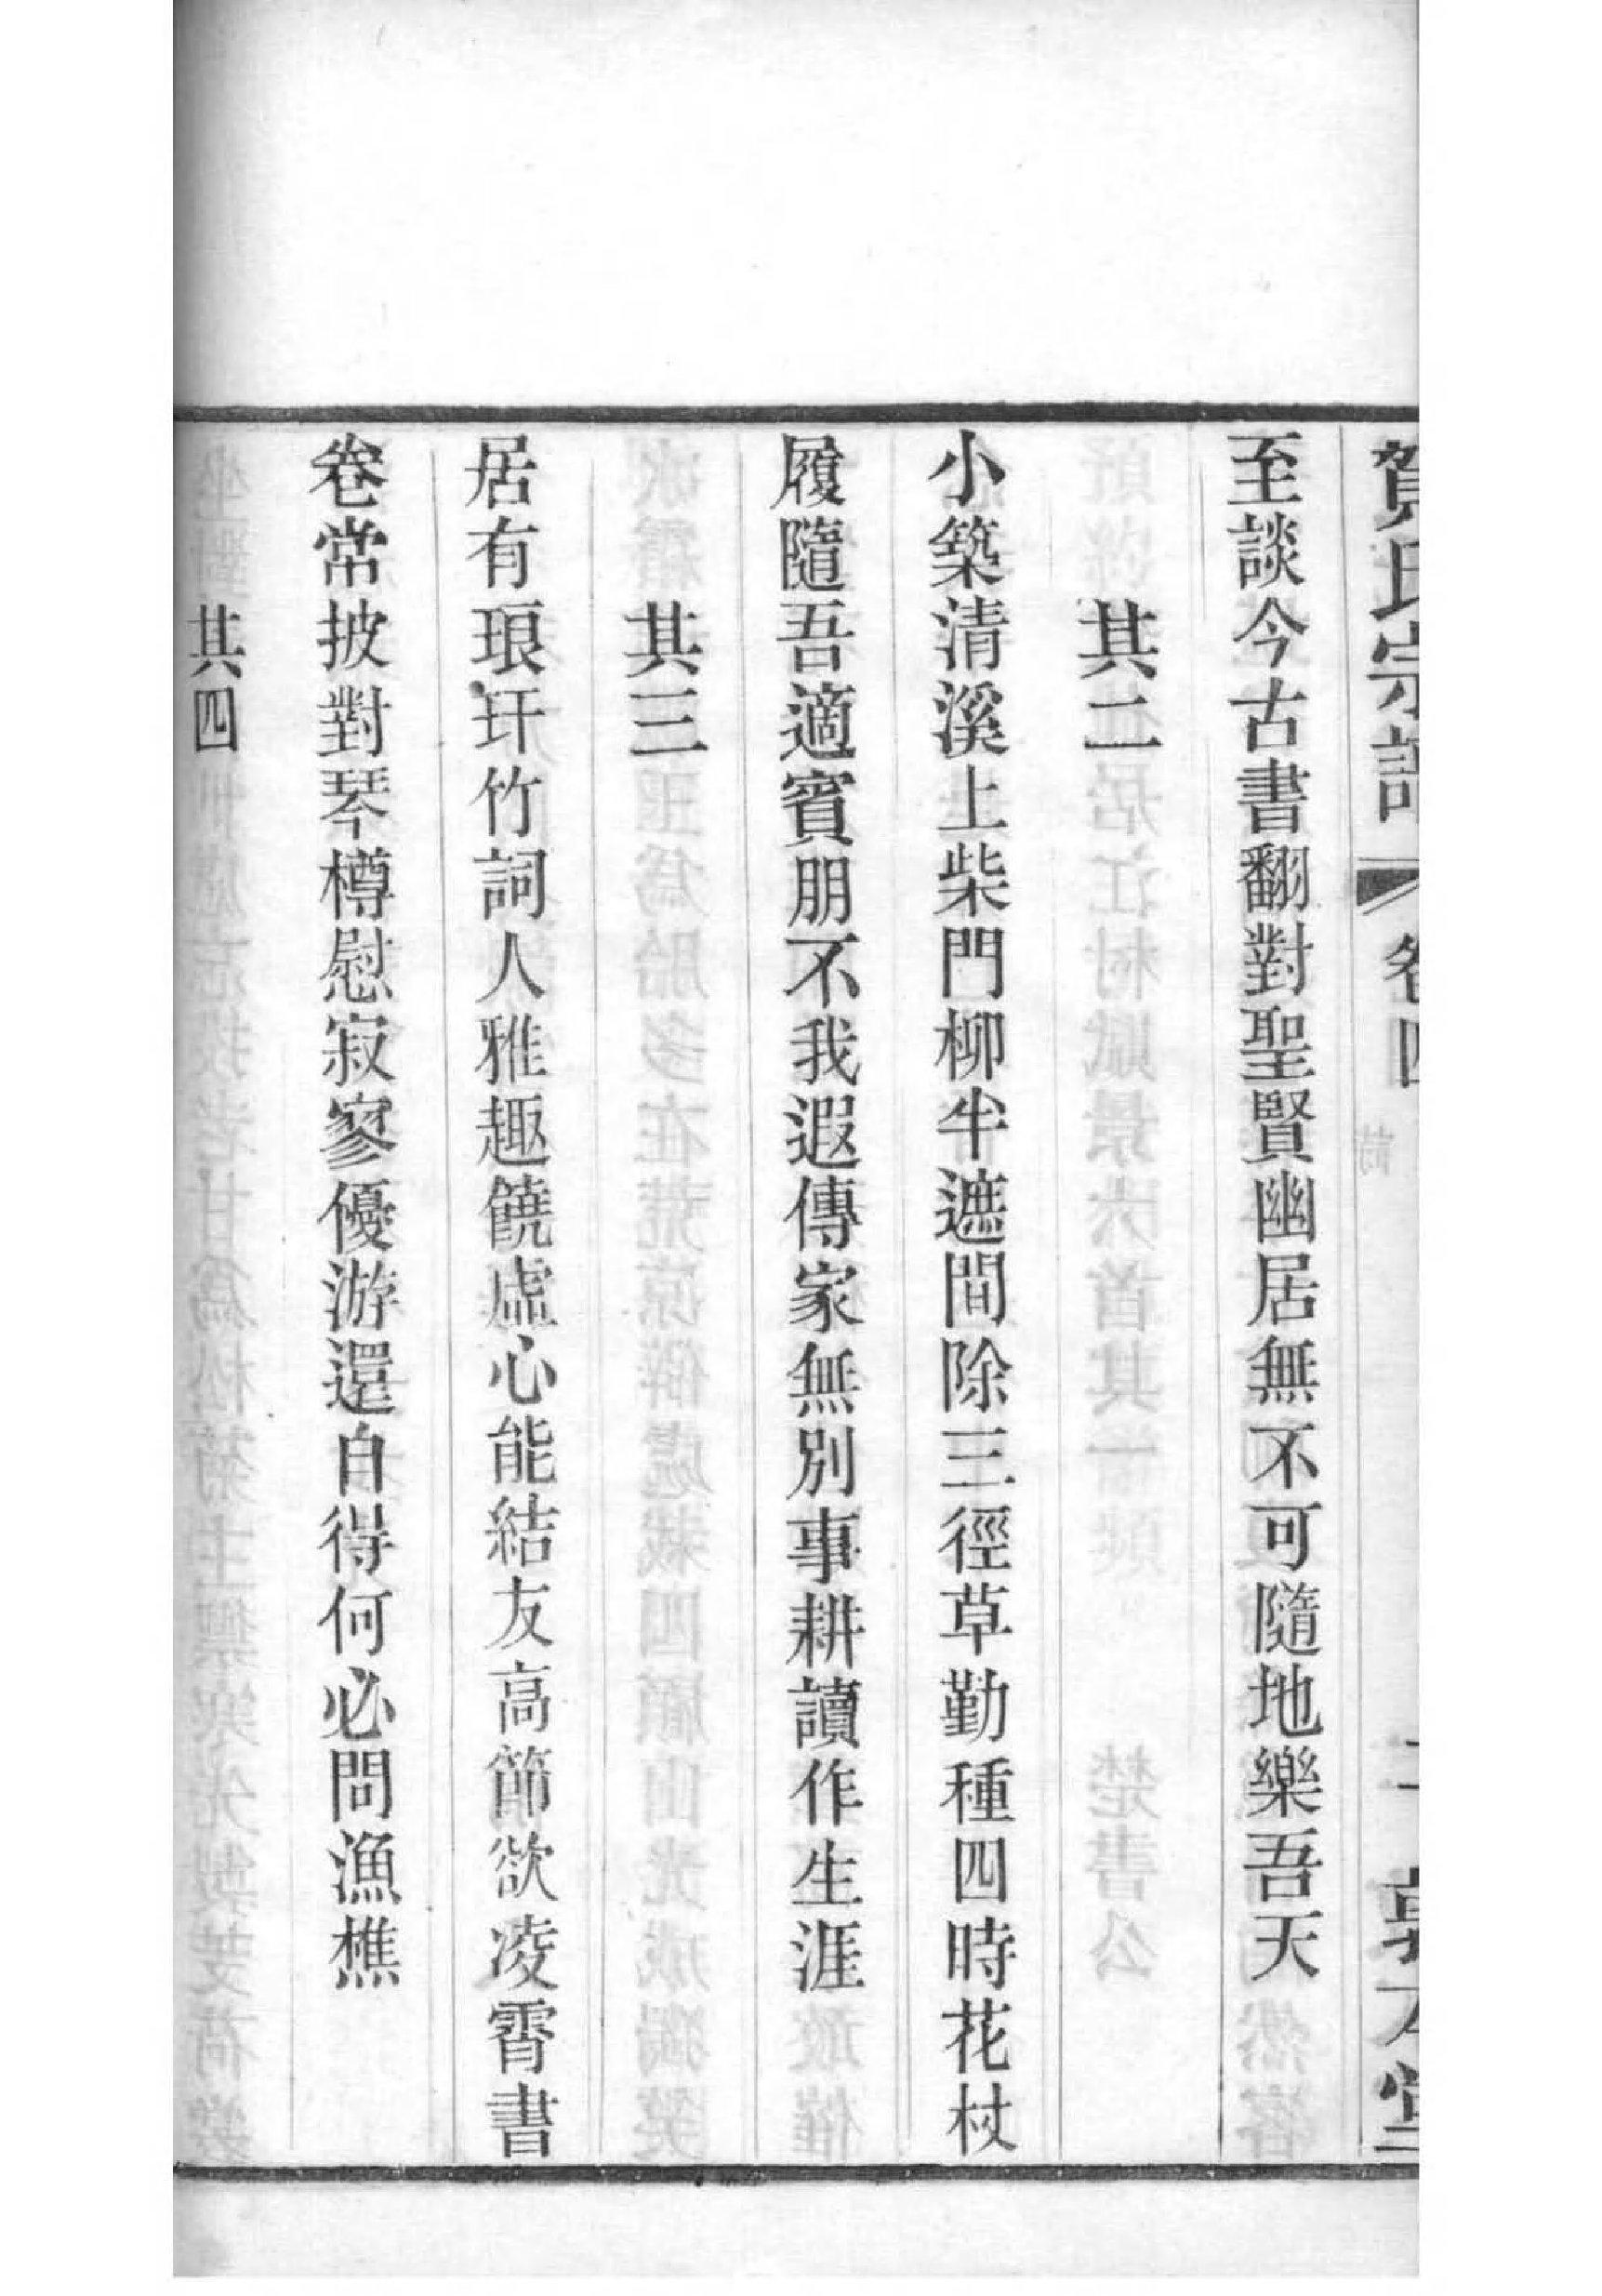 賀氏宗譜 卷四 詩 二 敦本堂
至談今古書翻對聖賢幽居無不可隨地樂吾天
其二
小築清溪上柴門柳半遮間除三徑草勤種四時花杖
履隨吾適賓朋不我遐傳家無別事耕讀作生涯
其三
居有琅玕竹詞人雅趣饒虛心能結友高節欲凌霄書
卷常披對琴樽慰寂寥優游還自得何必問漁樵
其四